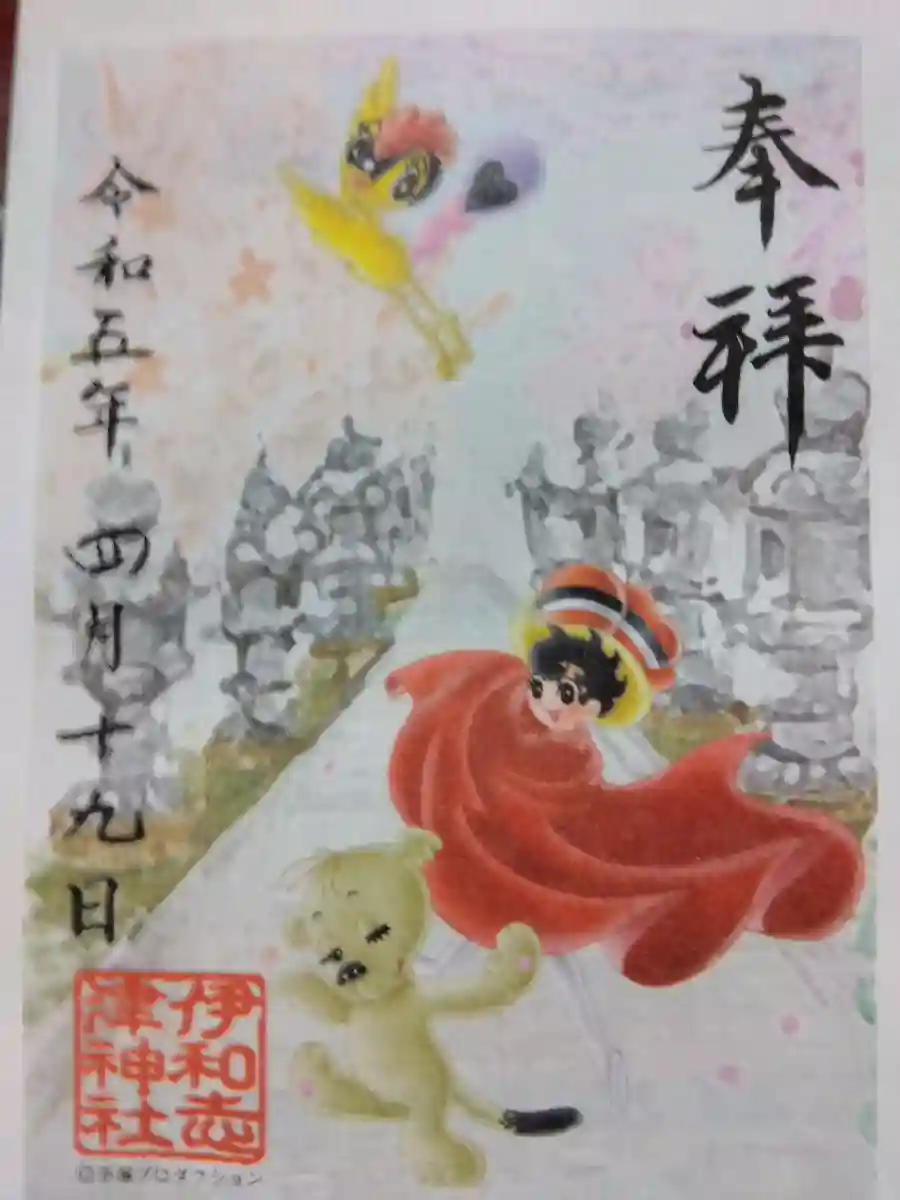 奉拝
令和五年四月十九日
伊和志
津神社
©手塚プロダクション